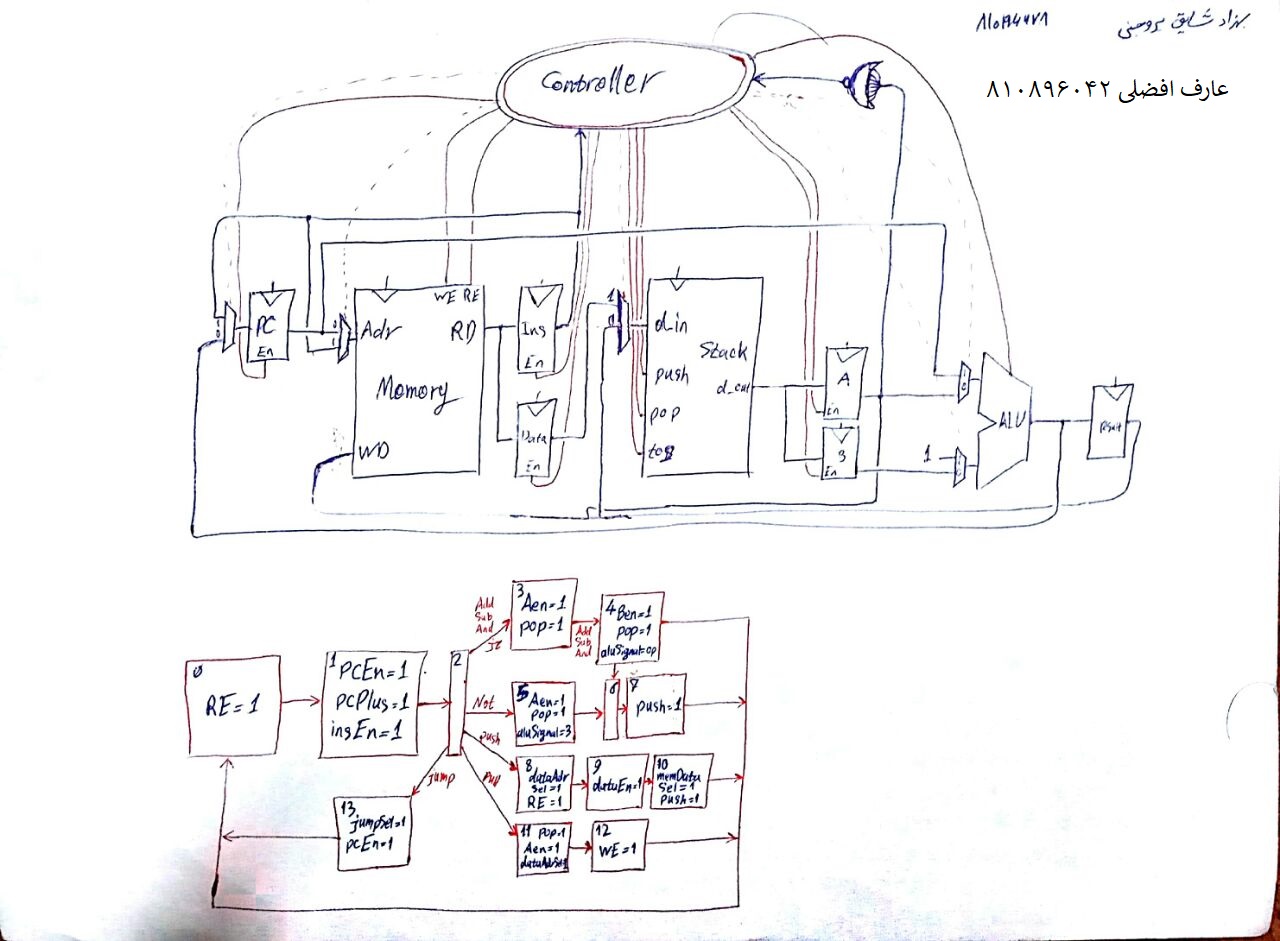 بهزاد شایق بروجنی
عارف افضلی ۸۱۰۸۹۶۰۴۲
Controller
PC
En
0
1
Adr
WE RE
RD
Momory
WD
Ins
En
Data
En
1
0
d_in
Stack
push
d_out
pop
A
En
B
En
1
ALU
0
RE=1
1
PCEn=1
pcPlus=1
insEn=1
2
Add
Sub
And
JZ
3
Aen=1
pop=1
Add
Sub
And
4
Ben=1
pop=1
aluSignal=op
Not
5
Aen=1
pop=1
aluSignal=3
6
7
push=1
push
8
dataAdr
Sel=1
RE=1
9
dataEn=1
10
memData
Sel=1
push=1
pop
11
pop=1
Aen=1
12
WE=1
jump
13
jumpSel=1
pcEn=1